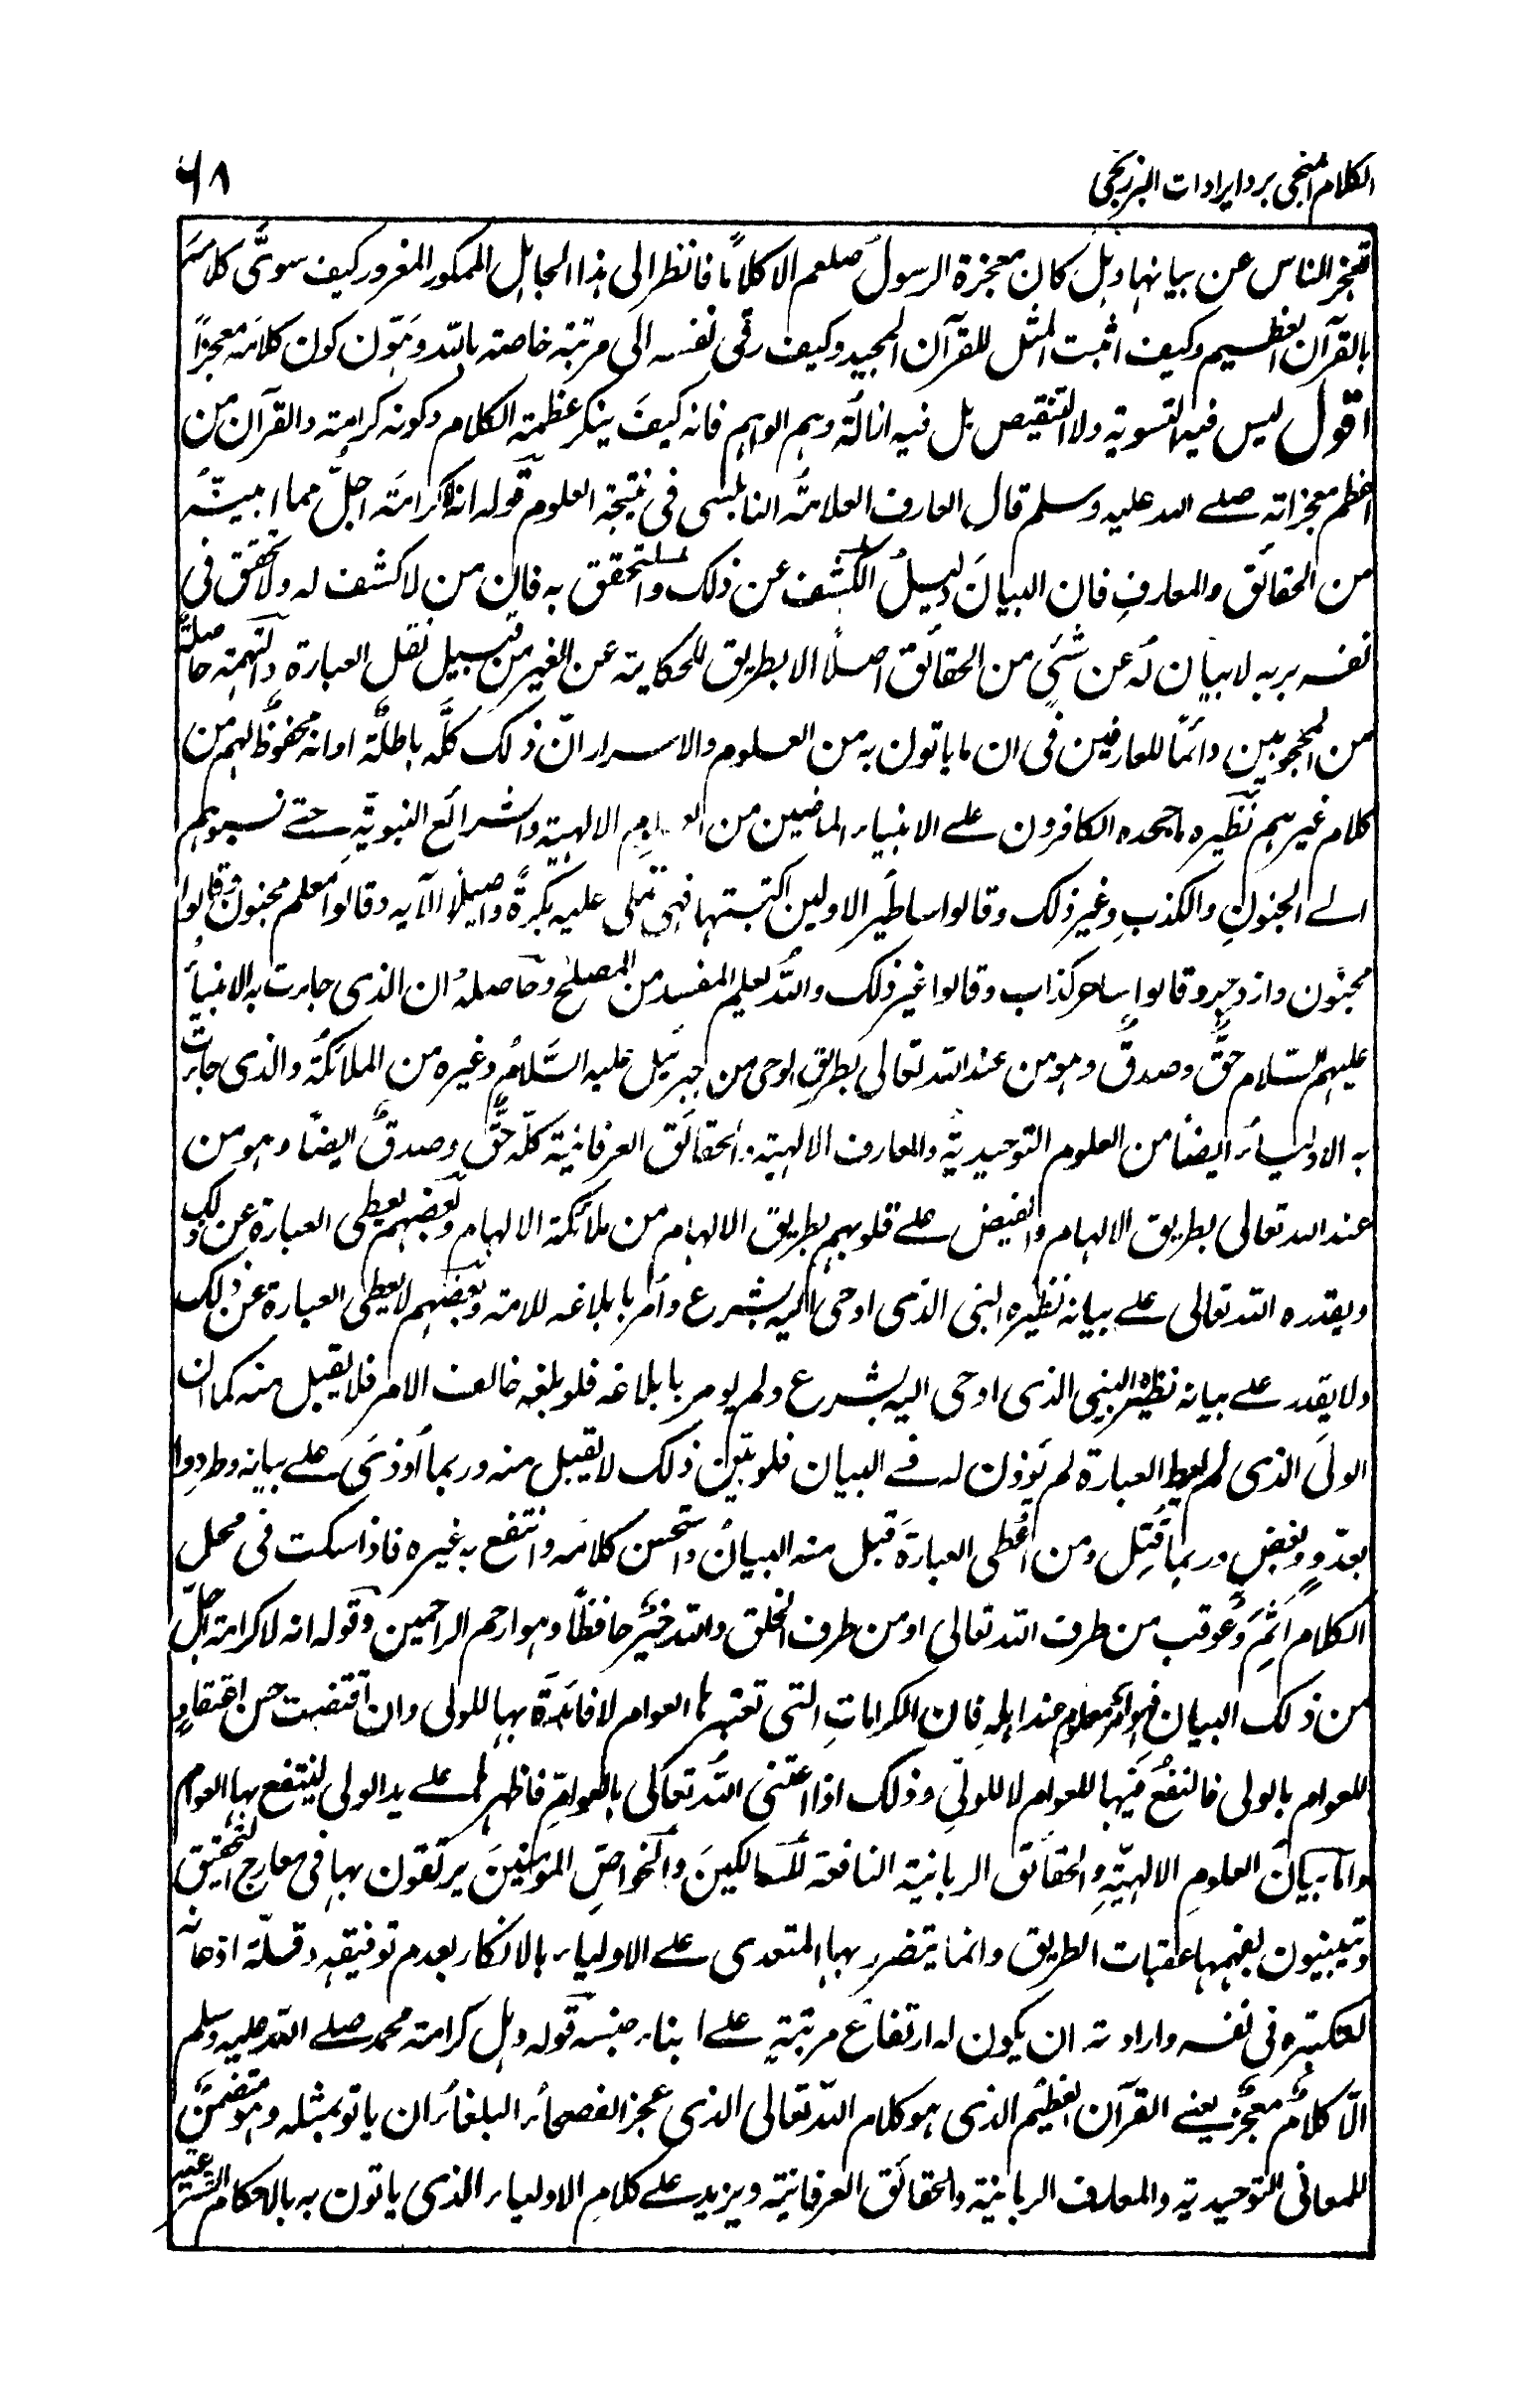 الکلام المنجی برد ایرادات البرزنجی
٦٨
تعجز الناس عن بیانها وهل کان معجزة الرسول صلعم الا کلاماً فانظر الی هذا الجاهل الممکور المغرور کیف سوّی کلامه
بالقرآن العظیم وکیف اثبت المثل للقرآن المجید وکیف رقّی نفسه الی مرتبة خاصة بالله وهوّن کون کلامه معجزاً
اقول لیس فیه التسویة ولا التنقیص بل فیه ازالة وهم الواهم فانه کیف ینکر عظمة الکلام وکونه کرامة والقرآن من
اعظم معجزاته صلے الله علیه وسلم قال العارف العلامة النابلسی فی نتیجة العلوم قوله انه لا کرامة اجلّ مما ابیّنه
من الحقائق والمعارف فان البیان دلیل الکشف عن ذلک والتحقق به فان من لا کشف له ولا تحقق فی
نفسه بربه لا بیان له عن شئ من الحقائق اصلًا الا بطریق الحکایة عن الغیر من قبیل نقل العبارة والتهمة حاصلة
من المحجوبین دائمًا للعارفین فی ان ما یاتون به من العلوم والاسرار انّ ذلک کلّه باطلة او انه محفوظ لهم من
کلام غیرهم نظیره ما جحده الکافرون علے الانبیاء الماضین من العلوم الالهیة والشرائع النبویّة حتے نسبوهم
الے الجنون والکذب وغیر ذلک وقالوا ساطیر الاولین اکتبتها فهی تملی علیه بکرةً واصیلًا الآیه وقالوا معلم مجنون وقالوا
مجنون وازدجر وقالوا ساحر کذاب وقالوا غیر ذلک والله یعلم المفسد من المصلح وحاصله ان الذی جاءت به الانبیاء
علیهم السّلام حقٌّ وصدقٌ وهو من عند الله تعالی بطریق الوحی من جبرئیل علیه السّلام وغیره من الملائکة والذی جاءت
به الاولیاء ایضاً من العلوم التوحیدیّة والمعارف الالهیة والحقائق العرفانیّة کلّه حقٌّ وصدقٌ ایضًا وهو من
عند الله تعالی بطریق الالهام والفیض علے قلوبهم بطریق الالهام من ملائکة الالهام وبعضهم یعطی العبارة عن ذلک
ویقدره الله تعالی علے بیانه نظیره النبی الذی اوحی الیه بشرع وامر بابلاغه للامة وبعضهم لا یعطی العبارة عن ذلک
ولا یقدر علے بیانه نظیره النبی الذی اوحی الیه بشرع ولم یومر بابلاغه فلو بلغه خالف الامر فلا یقبل منه کما ان
الولی الذی لم یعط العبارة لم یؤذن له فے البیان فلو بیّن ذلک لا یقبل منه وربما أُوذی علے بیانه وطردوا
بعدّو وبغض وربما قُتِل ومن اُعطی العبارة قبل منه البیان واستحسن کلامه وانتفع به غیره فاذا سکت فی محل
الکلام اَثِمَ وعُوقب من طرف الله تعالی او من طرف الخلق والله خیرٌ حافظًا وهو ارحم الراحمین وقوله انه لا کرامة اجلّ
من ذلک البیان فهو امر معلوم عند اهله فان الکرامات التی تعتبرها العوام لا فائدة بها للولی وان اقتضت حسن اعتقادٍ
للعوام بالولی فالنفع فیها للعوام لا للولی وذلک اذا اعتنی الله تعالی بالعوامّ فاظهرها علے ید الولی لینتفع بها العوام
واما بیان العلوم الالهیّة والحقائق الربانیة النافعة للسالکین والخواص المؤمنین یرتقون بها فی معارج التحقیق
ویبینون بفهمها عقبات الطریق وانما یتضرر بها المتعدی علے الاولیاء بالانکار بعدم توفیقه وقلّة اذعانه
لتکبّره فی نفسه وارادته ان یکون له ارتفاع مرتبة علے ابناء جنسه قوله وهل کرامة محمد صلے الله علیه وسلم
الّا کلامٌ معجزٌ یعنے القرآن العظیم الذی هو کلام الله تعالی الذی عجز الفصحاء البلغاء ان یاتو بمثله وهو متضمنٌ
للمعانی التوحیدیة والمعارف الربانیّة والحقائق العرفانیّة ویزید علے کلام الاولیاء الذی یاتون به بالاحکام الشرعیة